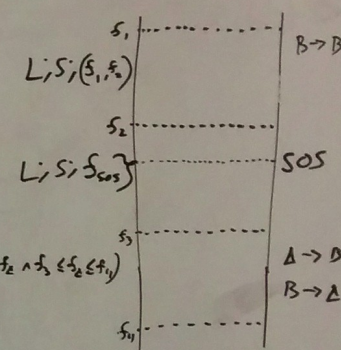 f₁
B → B
L; S; (f₁, f₂)
f₂
L; S; f_sos}
SOS
f₃
∧ f₃ ≤ f_c ≤ f₄)
A → B
B → A
f₄